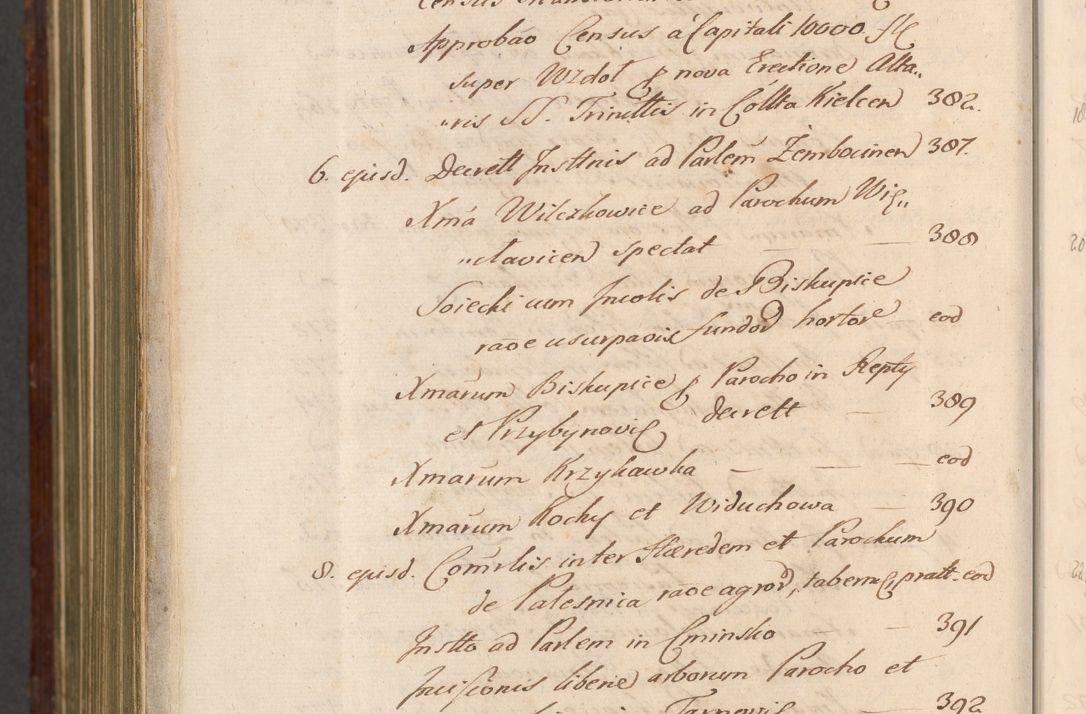 Approbao Census a Capitali 10000 fl
super Wzdoł p nova Erectione Alta„
„ris SS. Trinittis in Collta Kielcen 382.
6. ejusd. Decrett Insttnis ad Parlem Zembocinen 387.
Xma Wilczkowice ad Parochum Wię„
„clavicen spectat 388
Soiecki cum Incolis de Biskupice
raoe usurpaois fundor hortor eod
Xmarum Biskupice p Parocho in Repty
et Przybynovic decrett 389
Xmarum Krzykawka eod
Xmarum Kochy et Widuchowa 390
8. ejusd. Comrlis inter Hæredem et Parochum
de Palesnica raoe agror, tabernæ, pratt. eod
Instto ad Parlem in Cminsko 391
Incisionis liberæ arborum Parocho et
392